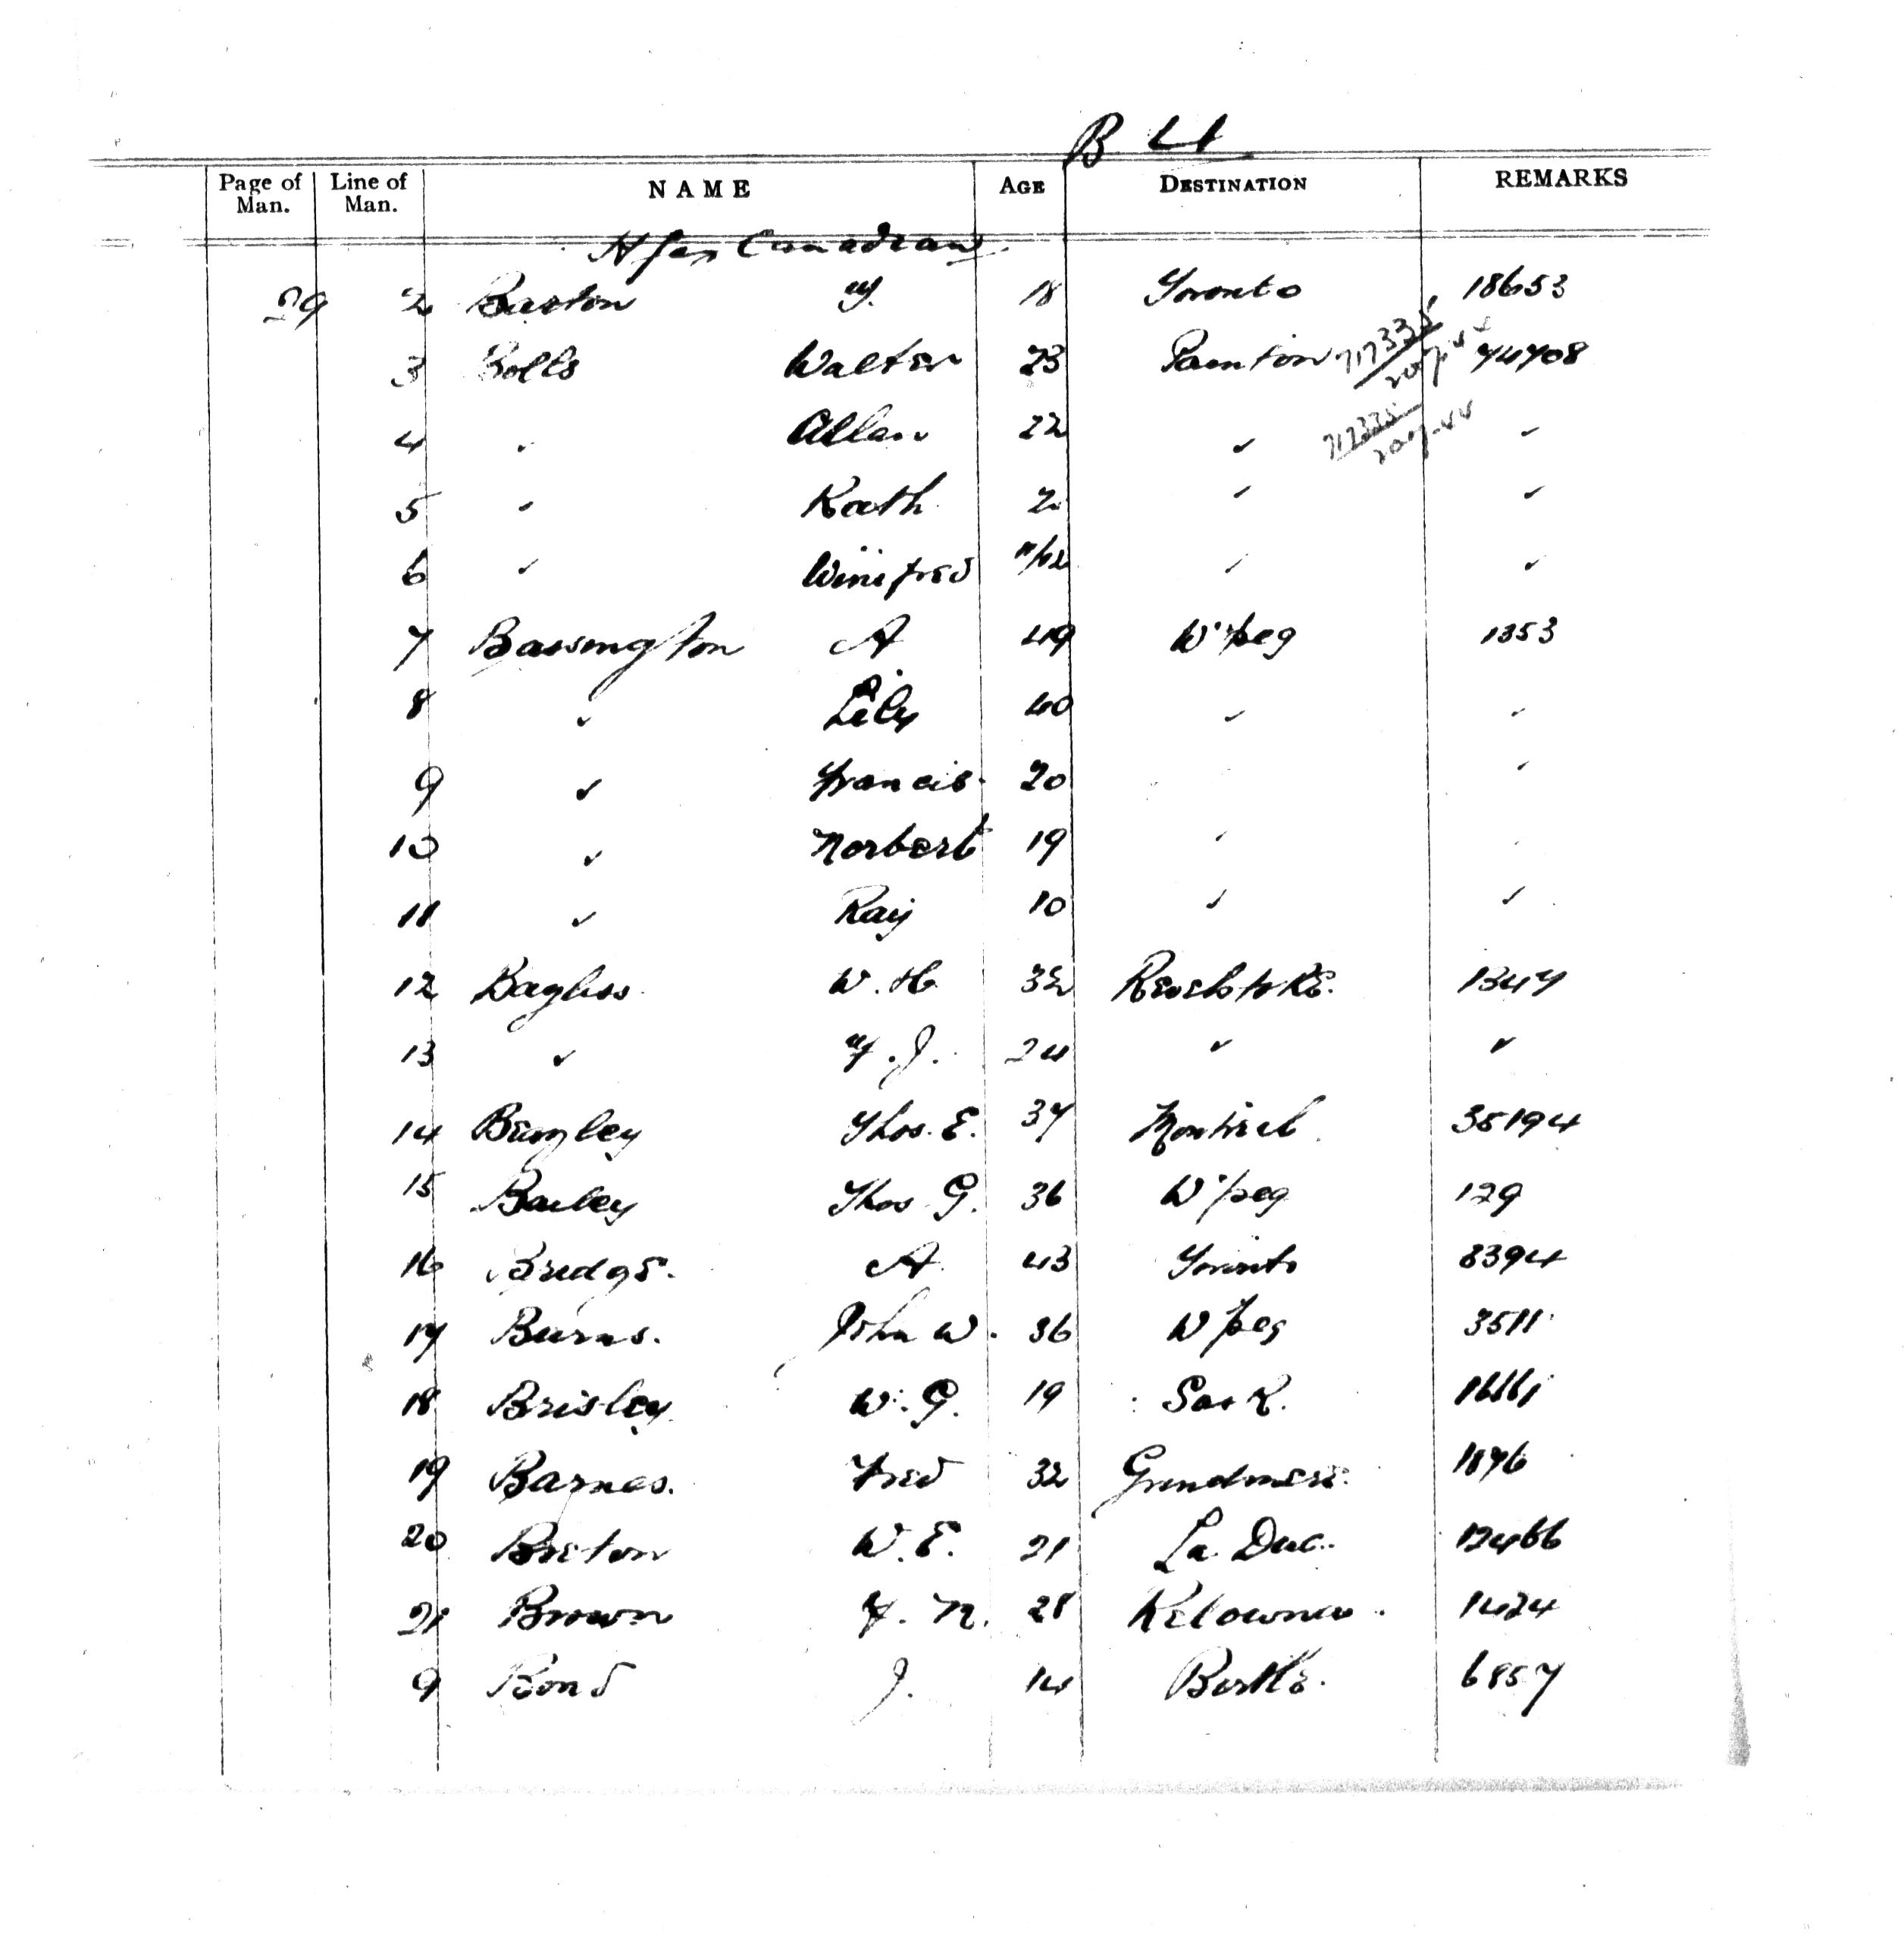 B 4
Page of Man. Line of Man. NAME AGE DESTINATION REMARKS
Hfax Canadian
29 2 Barton 18 Toronto 18653
3 Bolls Walter 23 74708
4 " Allan 22 " "
5 " Kath 2 " "
6 " Winifred 11/12 " "
7 Bassington A 49 W'peg 1353
8 " Lily 40 " "
9 " Francis 20 "
10 " Norbert 19 " "
11 " Ray 10 " "
12 Bayliss W. H. 32 Revelstoke. 1347
13 " F. J. 24 " "
14 Thos. E. 37 Montreal 35194
15 Bailey Thos G. 36 W'peg 129
16 Bridge. A. 43 Toronto 8394
17 Burns. John W. 36 W'peg 3511
18 Brisley W. G. 19 Sask.
19 Barnes. Fred 32 1876
20 Breton W. E. 21 La Duc. 12466
21 Brown F. N. 28 Kelowna. 1424
9 Bond J. 14 Birtle. 6857